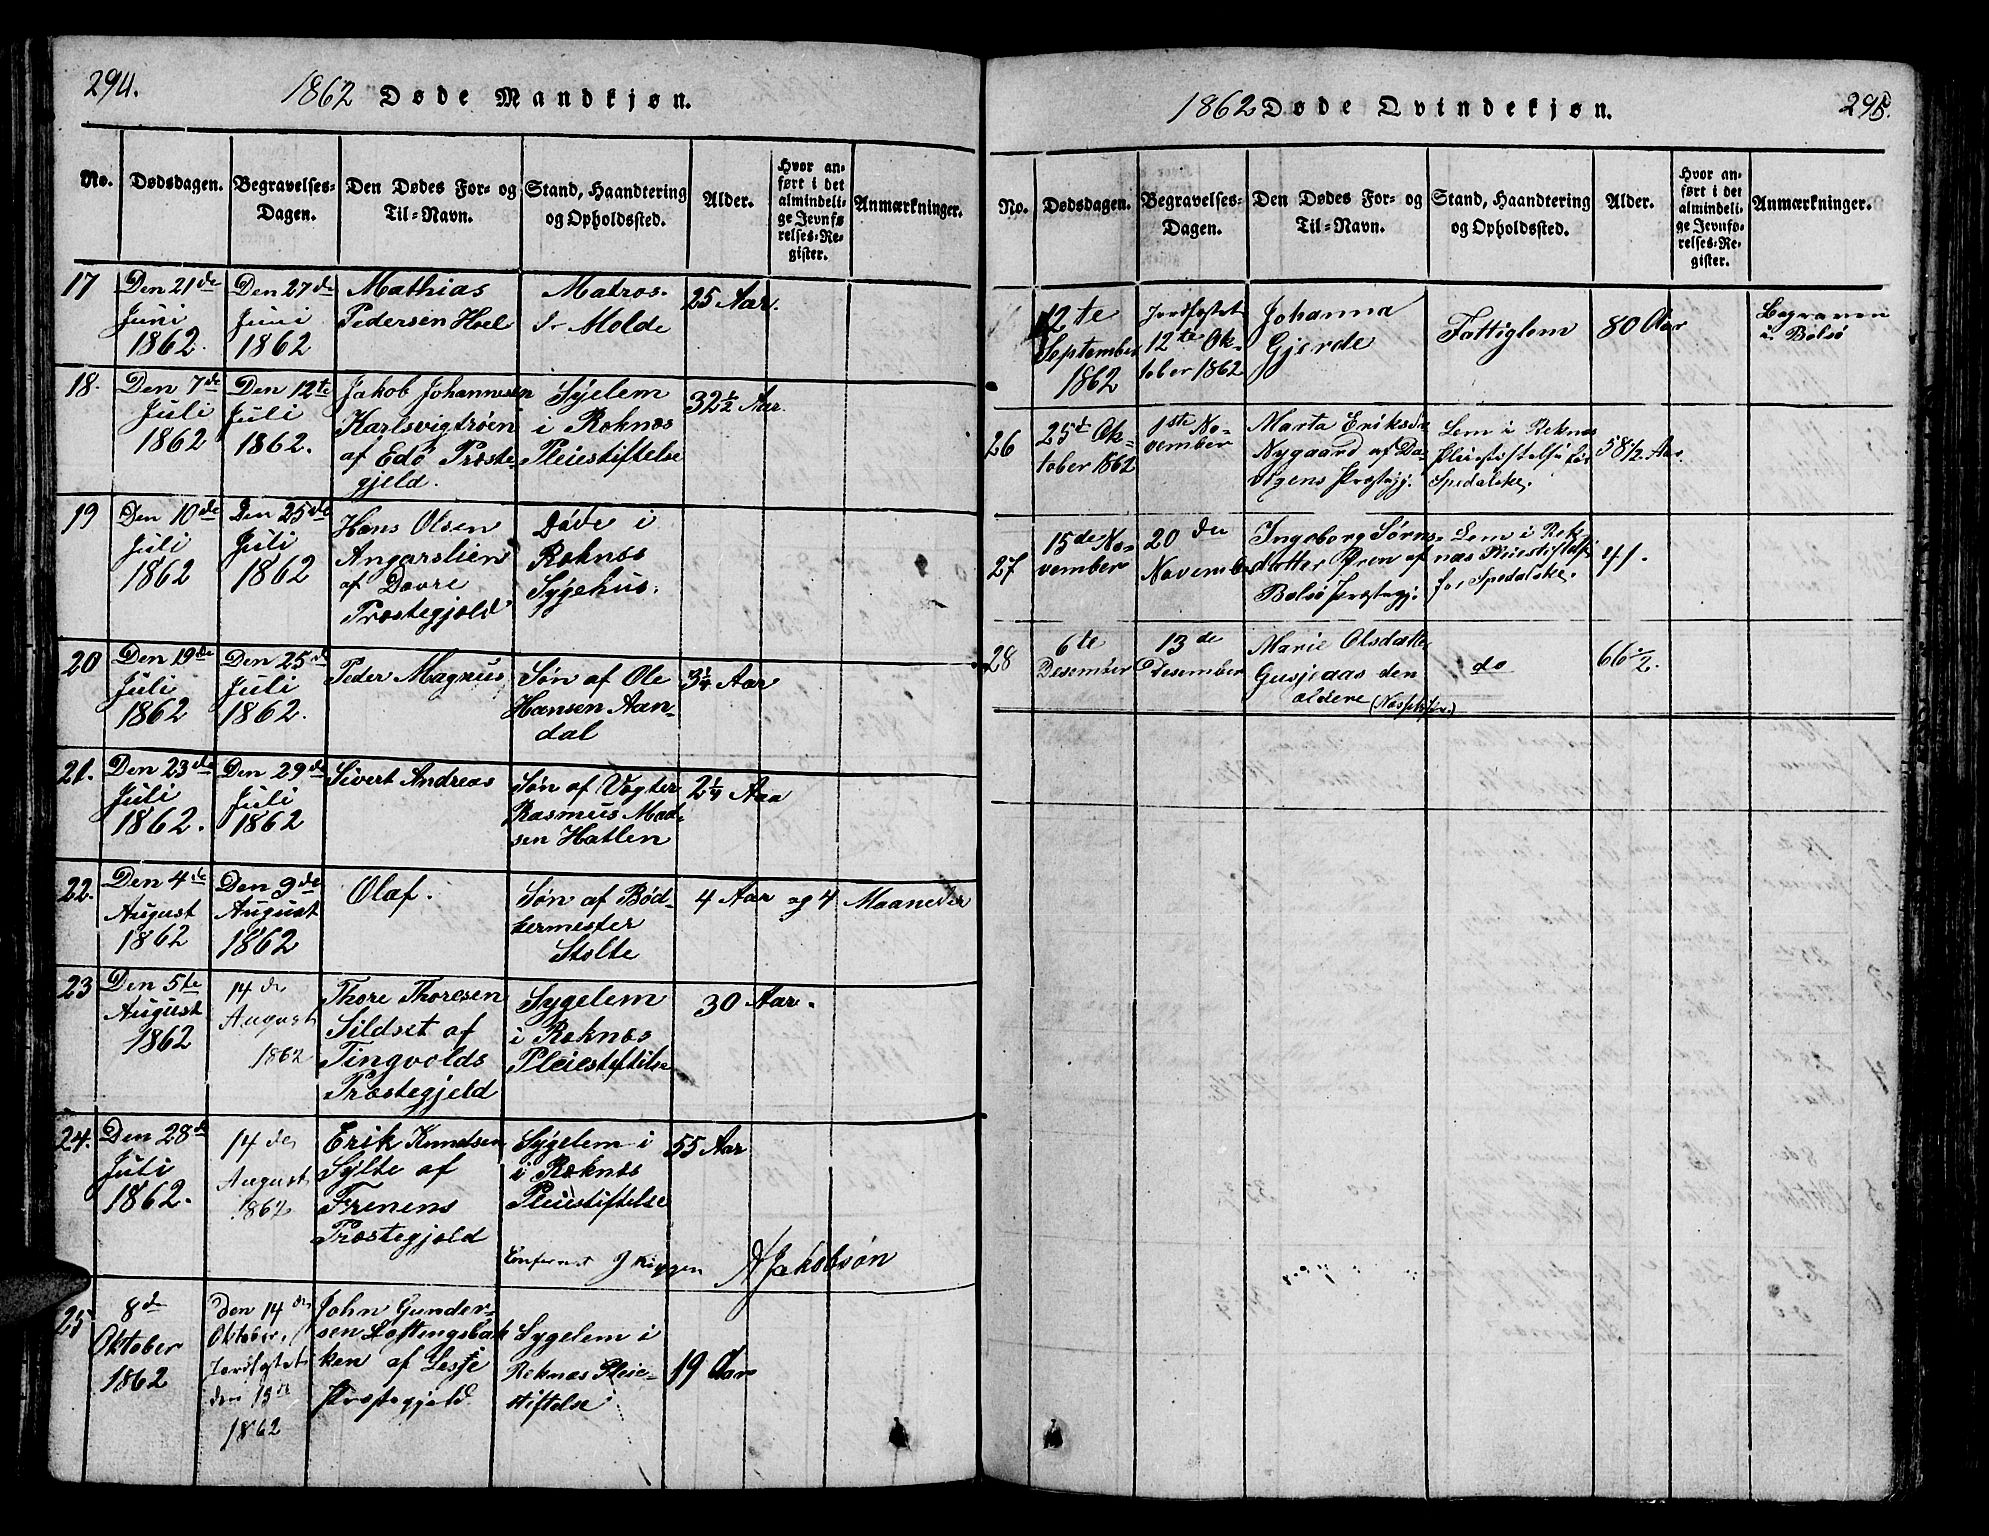 294.
1862 Døde Mandkjøn.
No.
Dødsdagen.
Begravelses-
Dagen.
Den Dødes For- og
Til-Navn.
Stand, Haandtering
og Opholdssted.
Alder.
Hvor an-
ført i det
almindeli-
ge Jevnfø
relses-Re-
gister.
Anmærkninger.
17
Den 21de
Juni
1862.
Den 27de
Juni
1862
Mathias
Pedersen Hoel
Matros.
Molde
25 Aar.
18.
Den 7de
Juli
1862
Den 12te
Juli
1862.
Jakob Johannesen
Karlsvigtrøen
af Edø Præste-
gjeld.
Syelem
i Reknæs
Pleiestiftelse
32 1/2 Aar.
19
Den 10de
Juli
1862
Den 25de
Juli
1862
Hans Olsen
Angarslien
af Dovre
Præstegjeld
Døde i
Reknæs
Sygehus.
20
Den 19de
Juli
1862
Den 25de
Juli
1862.
Peder Magnus
Søn af Ole
Hansen Aan-
dal
3 1/4 Aar
21.
Den 23de
Juli
1862.
Den 29de
Juli
1862
Sivert Andreas
Søn af Vogter
Rasmus Mad-
sen Hatlen
2 1/4 Aar
22.
Den 4de
August
1862
Den 9de
August
1862
Olaf.
Søn af Bød-
kermester
Stolte
4 Aar og 4 Maaneder
23
Den 5te
August
1862
14de
August
1862
Thore Thoresen
Sildset af
Tingvolds
Præstegjeld
Sygelem
i Reknæs
Pleiestiftelse
30 Aar.
24.
Den 28de
Juli
1862.
14de
August
1862
Erik Knudsen
Sylte af
Frenens
Præstegjeld
Sygelem i
i Reknæs
Pleiestiftelse
55 Aar
Conferert
A Jakobsøn
25
8de
Oktober
1862
Den 14de
Oktober,
Jordfæstet
den 19de
1862
John Gunder-
sen Loftingsbak
ken af Lesje
Præstegjeld
Sygelem i
Reknæs Pleie-
stiftelse
19 Aar
1862 Døde Qvindekjøn.
295.
No.
Dødsdagen.
Begravelses-
Dagen.
Den Dødes For- og
Til-Navn.
Stand, Haandtering
og Opholdssted.
Alder.
Hvor an-
ført i det
almindeli-
ge Jevnfø-
relses-Re-
gister.
Anmærkninger.
12te
September
1862
Jordfæstet
12te Ok-
tober 1862
Johanna
Gjerde
Fattiglem
80 Aar
Begraven
i Bolsø
26
25de Ok-
tober 1862
1ste No-
vember
Marta Eriksdr
Nygaard af Da-
vigens Præstegj.
Lem i Reknæs
Pleiestiftelse for
Spedalske.
58 1/2 Aar.
27
15de No-
vember
20de
November
Ingeborg Sørns-
datter Øren af
Bolsø Præstegj.
Lem i Rek-
næs Pleiestiftelse
for Spedalske.
28
6te
Desember
13de
Desember
Marie Olsdatter
Gusjeaas den
ældere
do
66 1/2.